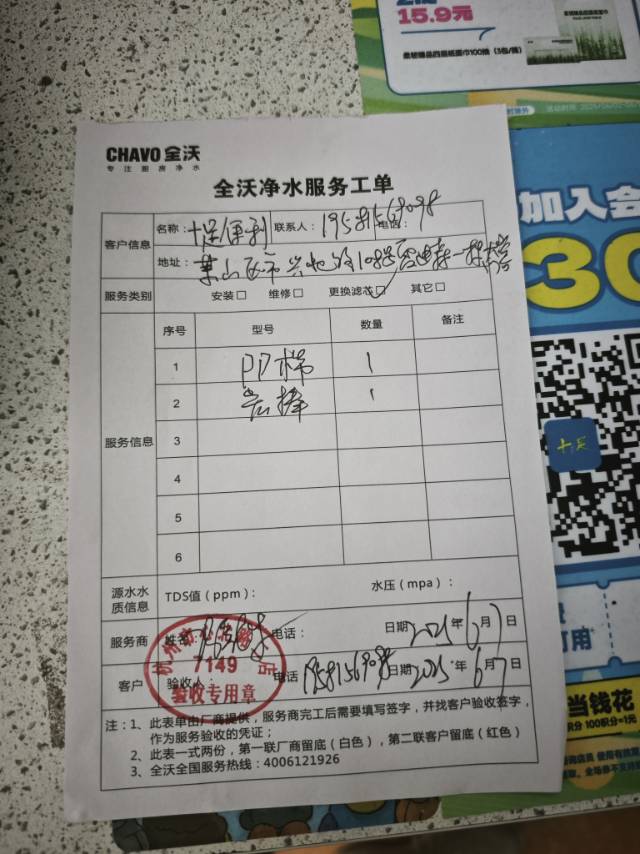 15.9元
柔韧臻品四层纸面巾100抽（3包/提）
CHAVO 全沃
专注厨房净水
全沃净水服务工单
客户信息
名称： 十足便利 联系人： 电话：
19581569098
地址：
服务类别 安装□ 维修□ 更换滤芯□ 其它□
服务信息
序号 型号 数量 备注
1 PP棉 1
2 炭棒 1
3
4
5
6
源水水质信息 TDS值（ppm）： 水压（mpa）：
服务商 姓名： 电话： 日期 2025年6月7日
7149
验收专用章
客户 验收人： 电话 19581569098 日期 2025年6月7日
注：1、此表单由厂商提供，服务商完工后需要填写签字，并找客户验收签字，
作为服务验收的凭证；
2、此表一式两份，第一联厂商留底（白色），第二联客户留底（红色）
3、全沃全国服务热线：4006121926
加入会
30
十足
可用
当钱花
100积分=1元